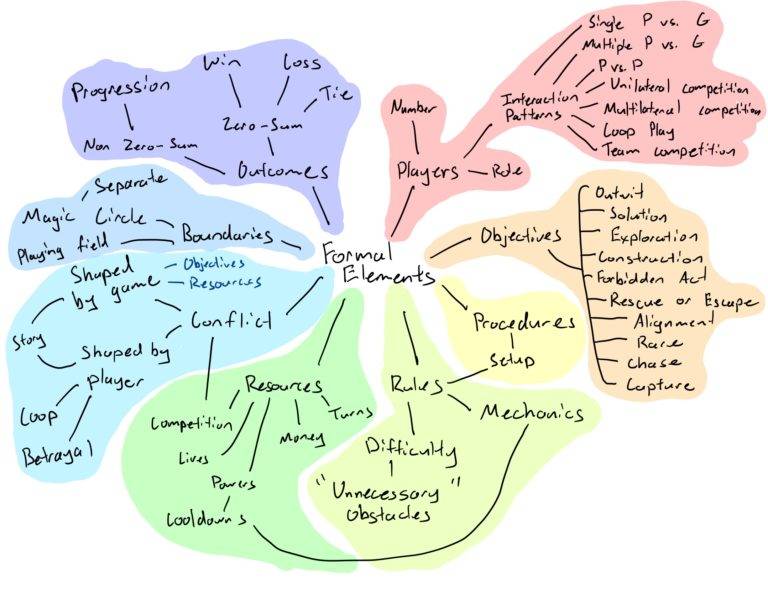 Formal
Elements
Outcomes
Zero-Sum
Win
Loss
Tie
Non Zero-Sum
Progression
Players
Number
Role
Interaction
Patterns
Single P vs. G
Multiple P vs. G
P vs. P
Unilateral competition
Multilateral competition
Coop Play
Team competition
Objectives
Outwit
Solution
Exploration
Construction
Forbidden Act
Rescue or Escape
Alignment
Race
Chase
Capture
Procedures
Setup
Rules
Mechanics
Difficulty
"Unnecessary"
obstacles
Resources
Turns
Money
Competition
Lives
Powers
Cooldowns
Conflict
Shaped
by game
Objectives
Resources
Story
Shaped by
player
Coop
Betrayal
Boundaries
Magic Circle
Separate
Playing field